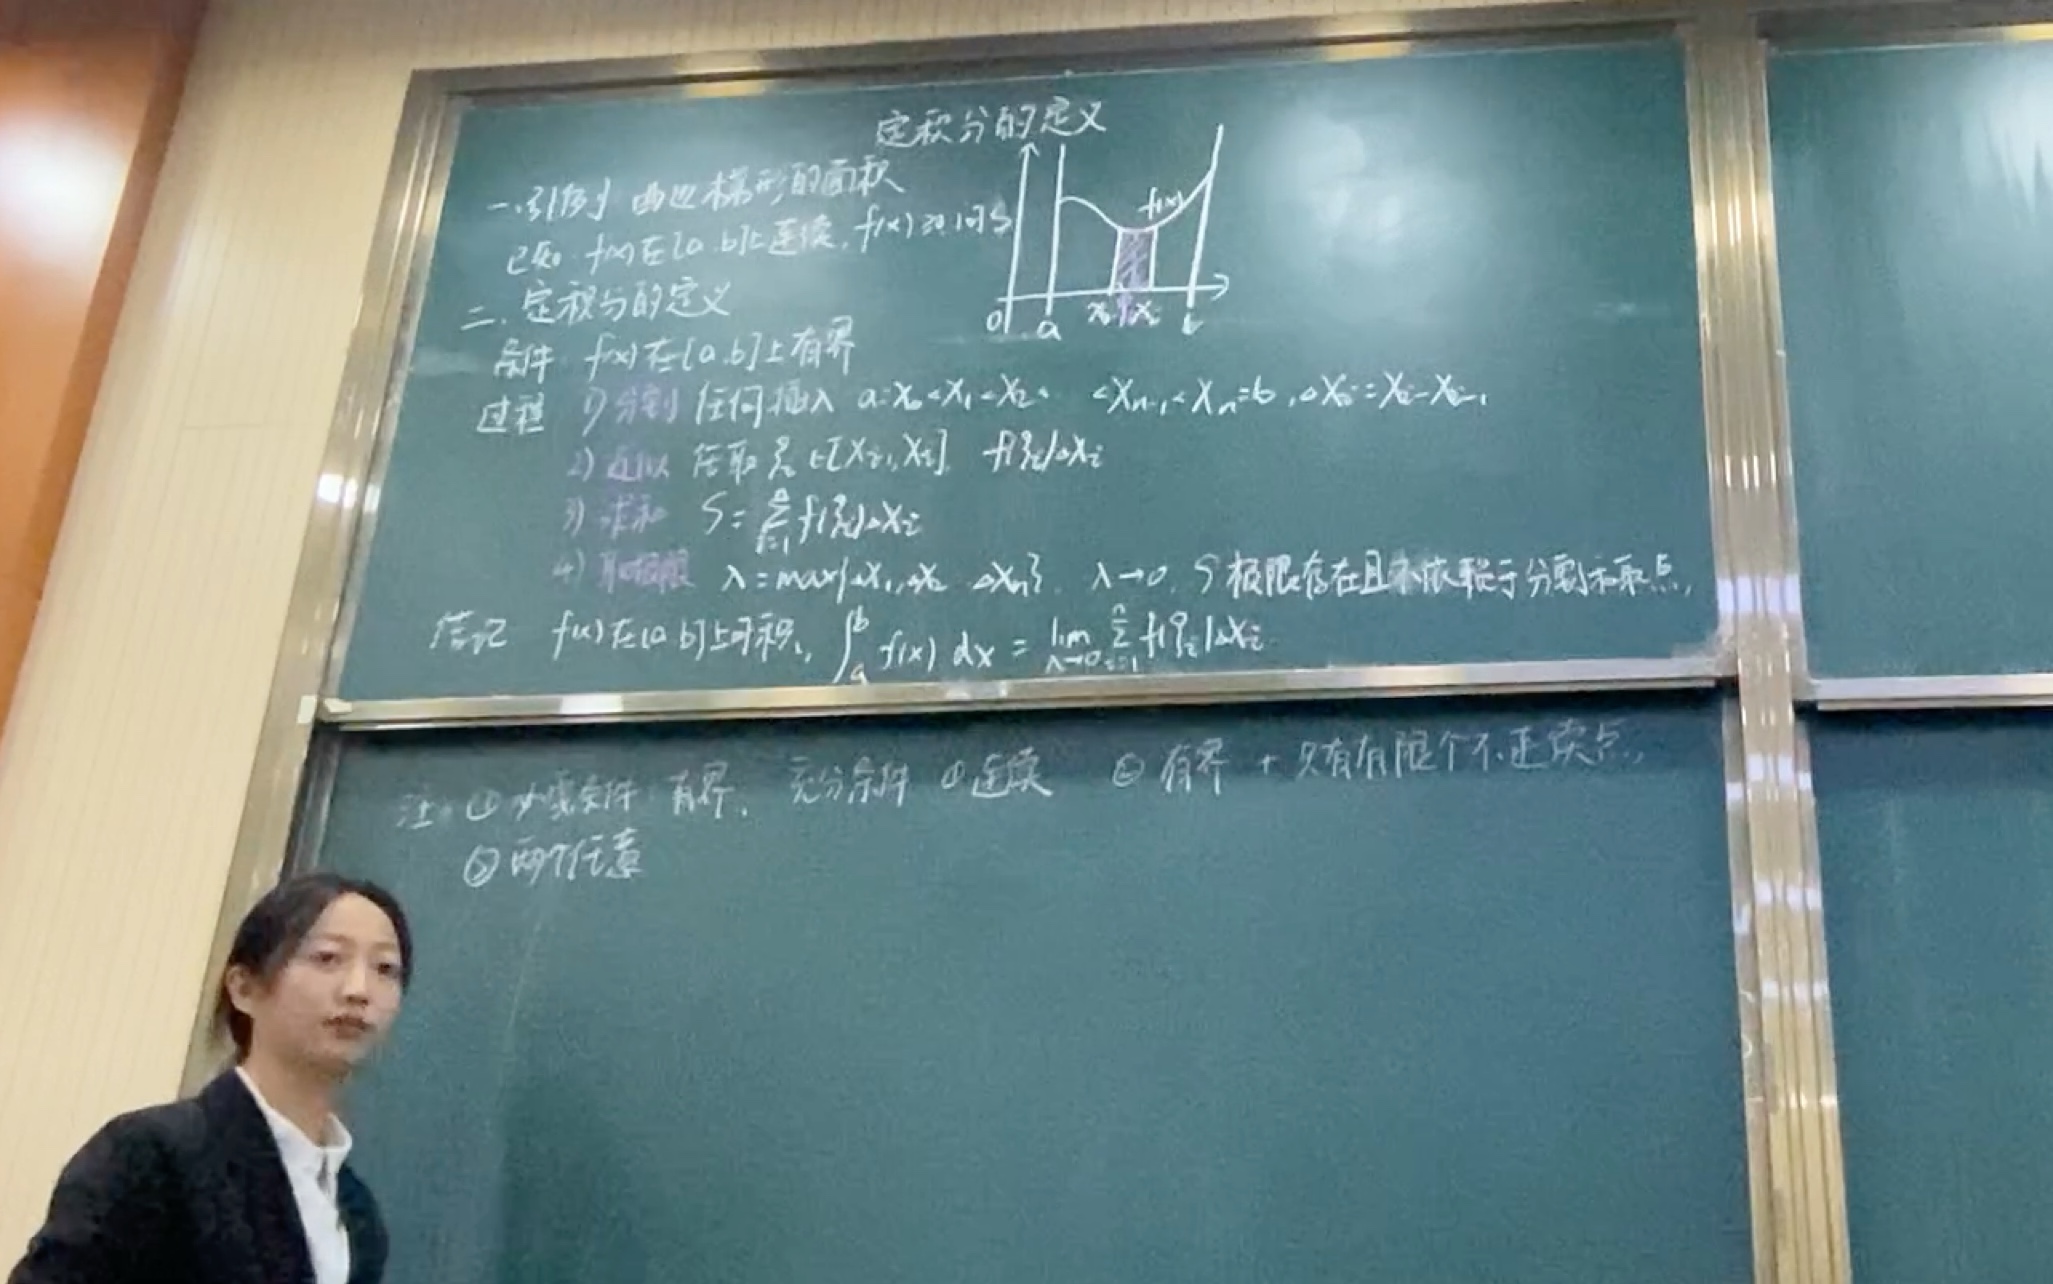 定积分的定义
一.引例 曲边梯形的面积
已知 f(x)在[a.b]上连续,f(x)≥0,问S
f(x)
0 a xᵢ₋₁ ξᵢ xᵢ b
二.定积分的定义
条件 f(x)在[a.b]上有界
过程 1)分割 任何插入 a=x₀<x₁<x₂< <xₙ₋₁<xₙ=b,△xᵢ=xᵢ-xᵢ₋₁
2)近似 任取ξᵢ∈[xᵢ₋₁,xᵢ], f(ξᵢ)△xᵢ
3)求和 S=∑ⁿᵢ₌₁f(ξᵢ)△xᵢ
4)取极限 λ=max{△x₁,△x₂ △xₙ}, λ→0, S极限存在且不依赖于分割和取点,
信记 f(x)在[a b]上可积, ∫ₐᵇ f(x) dx = lim λ→0 ∑ⁿᵢ₌₁ f(ξᵢ)△xᵢ
注:①必要条件 有界, 充分条件 ①连续 ② 有界 + 只有有限个不连续点,
②两个任意